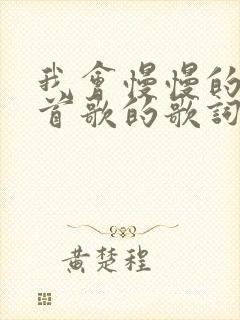 我會慢慢的
首歌的歌詞
黃楚程